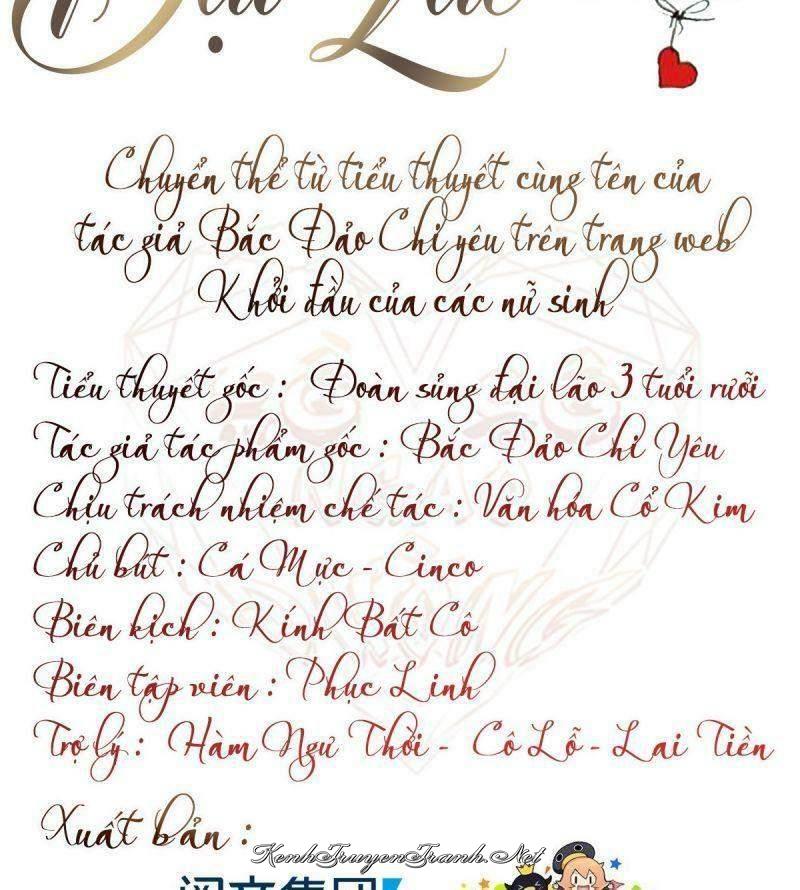 Đại Lão
Chuyển thể từ tiểu thuyết cùng tên của
tác giả Bắc Đảo Chi yêu trên trang web
Khởi đầu của các nữ sinh
Tiểu thuyết gốc : Đoàn sủng đại lão 3 tuổi rưỡi
Tác giả tác phẩm gốc : Bắc Đảo Chi Yêu
Chịu trách nhiệm chế tác : Văn hóa Cổ Kim
Chủ bút : Cá Mực - Cinco
Biên kịch : Kính Bất Cô
Biên tập viên : Phục Linh
Trợ lý : Hàm Ngư Thời - Cô Lỗ - Lai Tiền
Xuất bản :
KenhTruyenTranh.Net
阅文集团